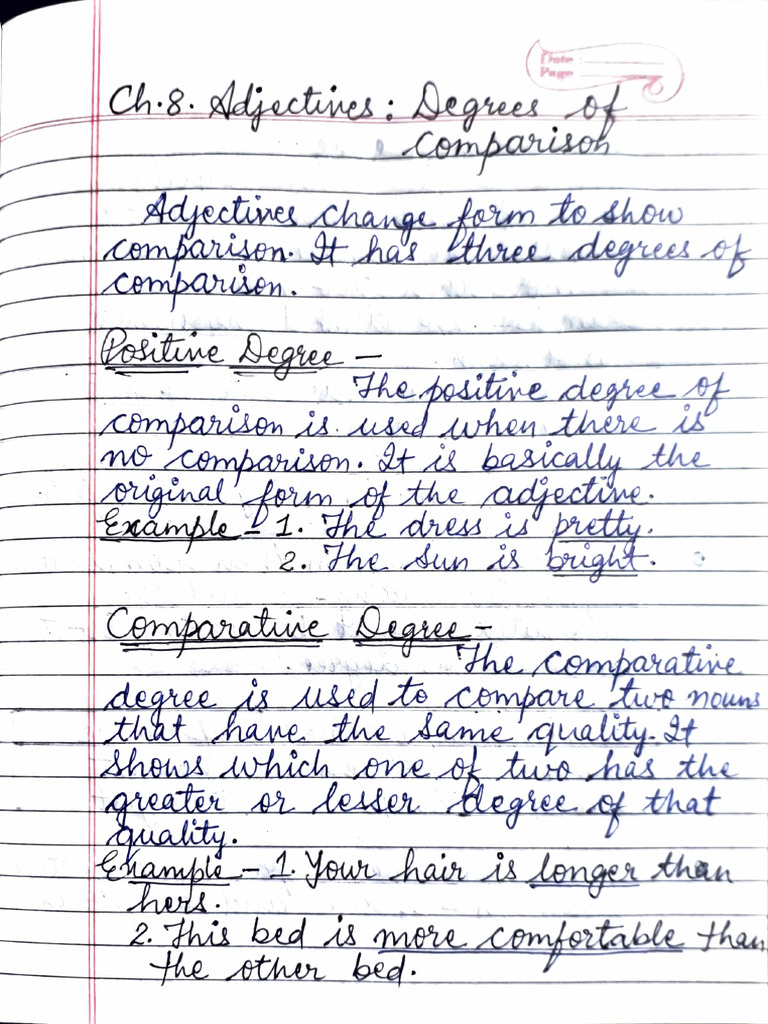 Date
Page
Ch.8. Adjectives: Degrees of
comparison
Adjectives change form to show
comparison. It has three degrees of
comparison.
Positive Degree -
The positive degree of
comparison is used when there is
no comparison. It is basically the
original form of the adjective.
Example - 1. The dress is pretty.
2. The Sun is bright.
Comparative Degree -
The comparative
degree is used to compare two nouns
that have the same quality. It
shows which one of two has the
greater or lesser degree of that
quality.
Example - 1. Your hair is longer than
hers.
2. This bed is more comfortable than
the other bed.